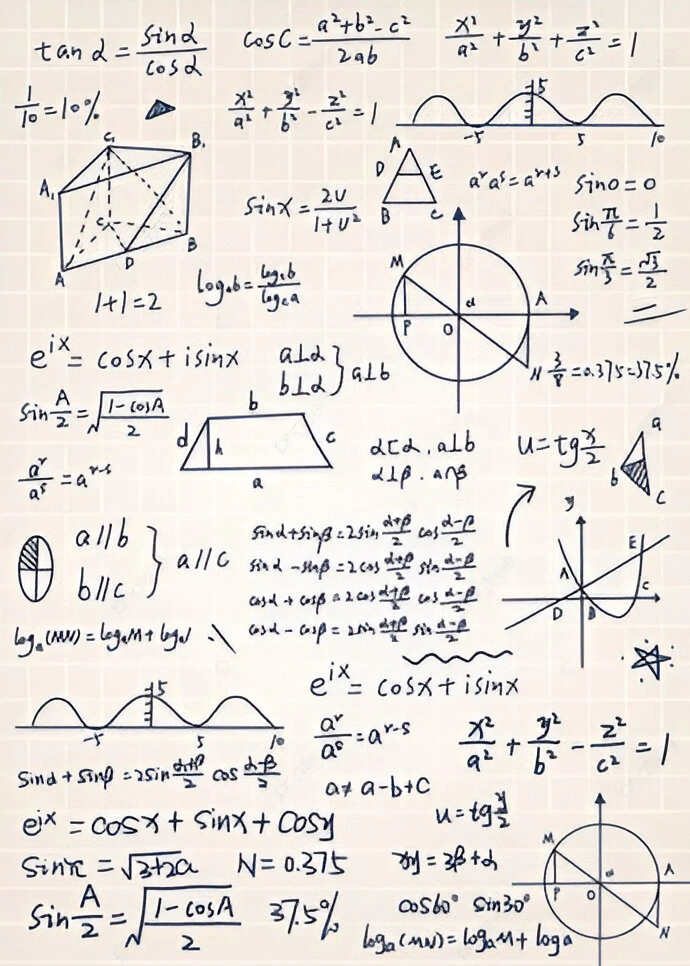 tan α = sinα/cosα
cosC = a²+b²-c²/2ab
x²/a² + y²/b² + z²/c² = 1
1/10 = 10%
x²/a² + y²/b² - z²/c² = 1
5
-5 5 10
C₁
B₁
A₁
C
B
D
A
A
D E
B C
aʳaˢ=aʳ⁺ˢ
sin0=0
sin π/6 = 1/2
sin π/3 = √3/2
sinx = 2U/1+U²
1+1=2
M
α
A
P O
N
3/8=0.375=37.5%
eⁱˣ= cosx+isinx
a⊥α
b⊥α } a⊥b
sin A/2 = √1-cosA/2
b
d h c
a
aʳ/aˢ = aʳ⁻ˢ
α⊥β . a∩β
U=tg x/2
a
b
c
a//b
b//c } a//c
sinα+sinβ=2sin α+β/2 cos α-β/2
sinα-sinβ=2cos α+β/2 sin α-β/2
cosα+cosβ=2cos α+β/2 cos α-β/2
cosα-cosβ=2sin α+β/2 sin α-β/2
y
E
A
C
D
logₐ(MN)=logₐM+logₐN
eⁱˣ= cosx+isinx
5
-5 5 10
aʳ/aˢ = aʳ⁻ˢ
x²/a² + y²/b² - z²/c² = 1
sinα+sinβ=2sin α+β/2 cos α-β/2
a≠a-b+c
eʲˣ= cosx+sinx+cosy
u=tg y/2
√3+2a
N=0.375
=3β+α
sin A/2 = √1-cosA/2
37.5%
cos60° sin30°
logₐ(MN)=logₐM+logₐ
M
α
A
P O
N